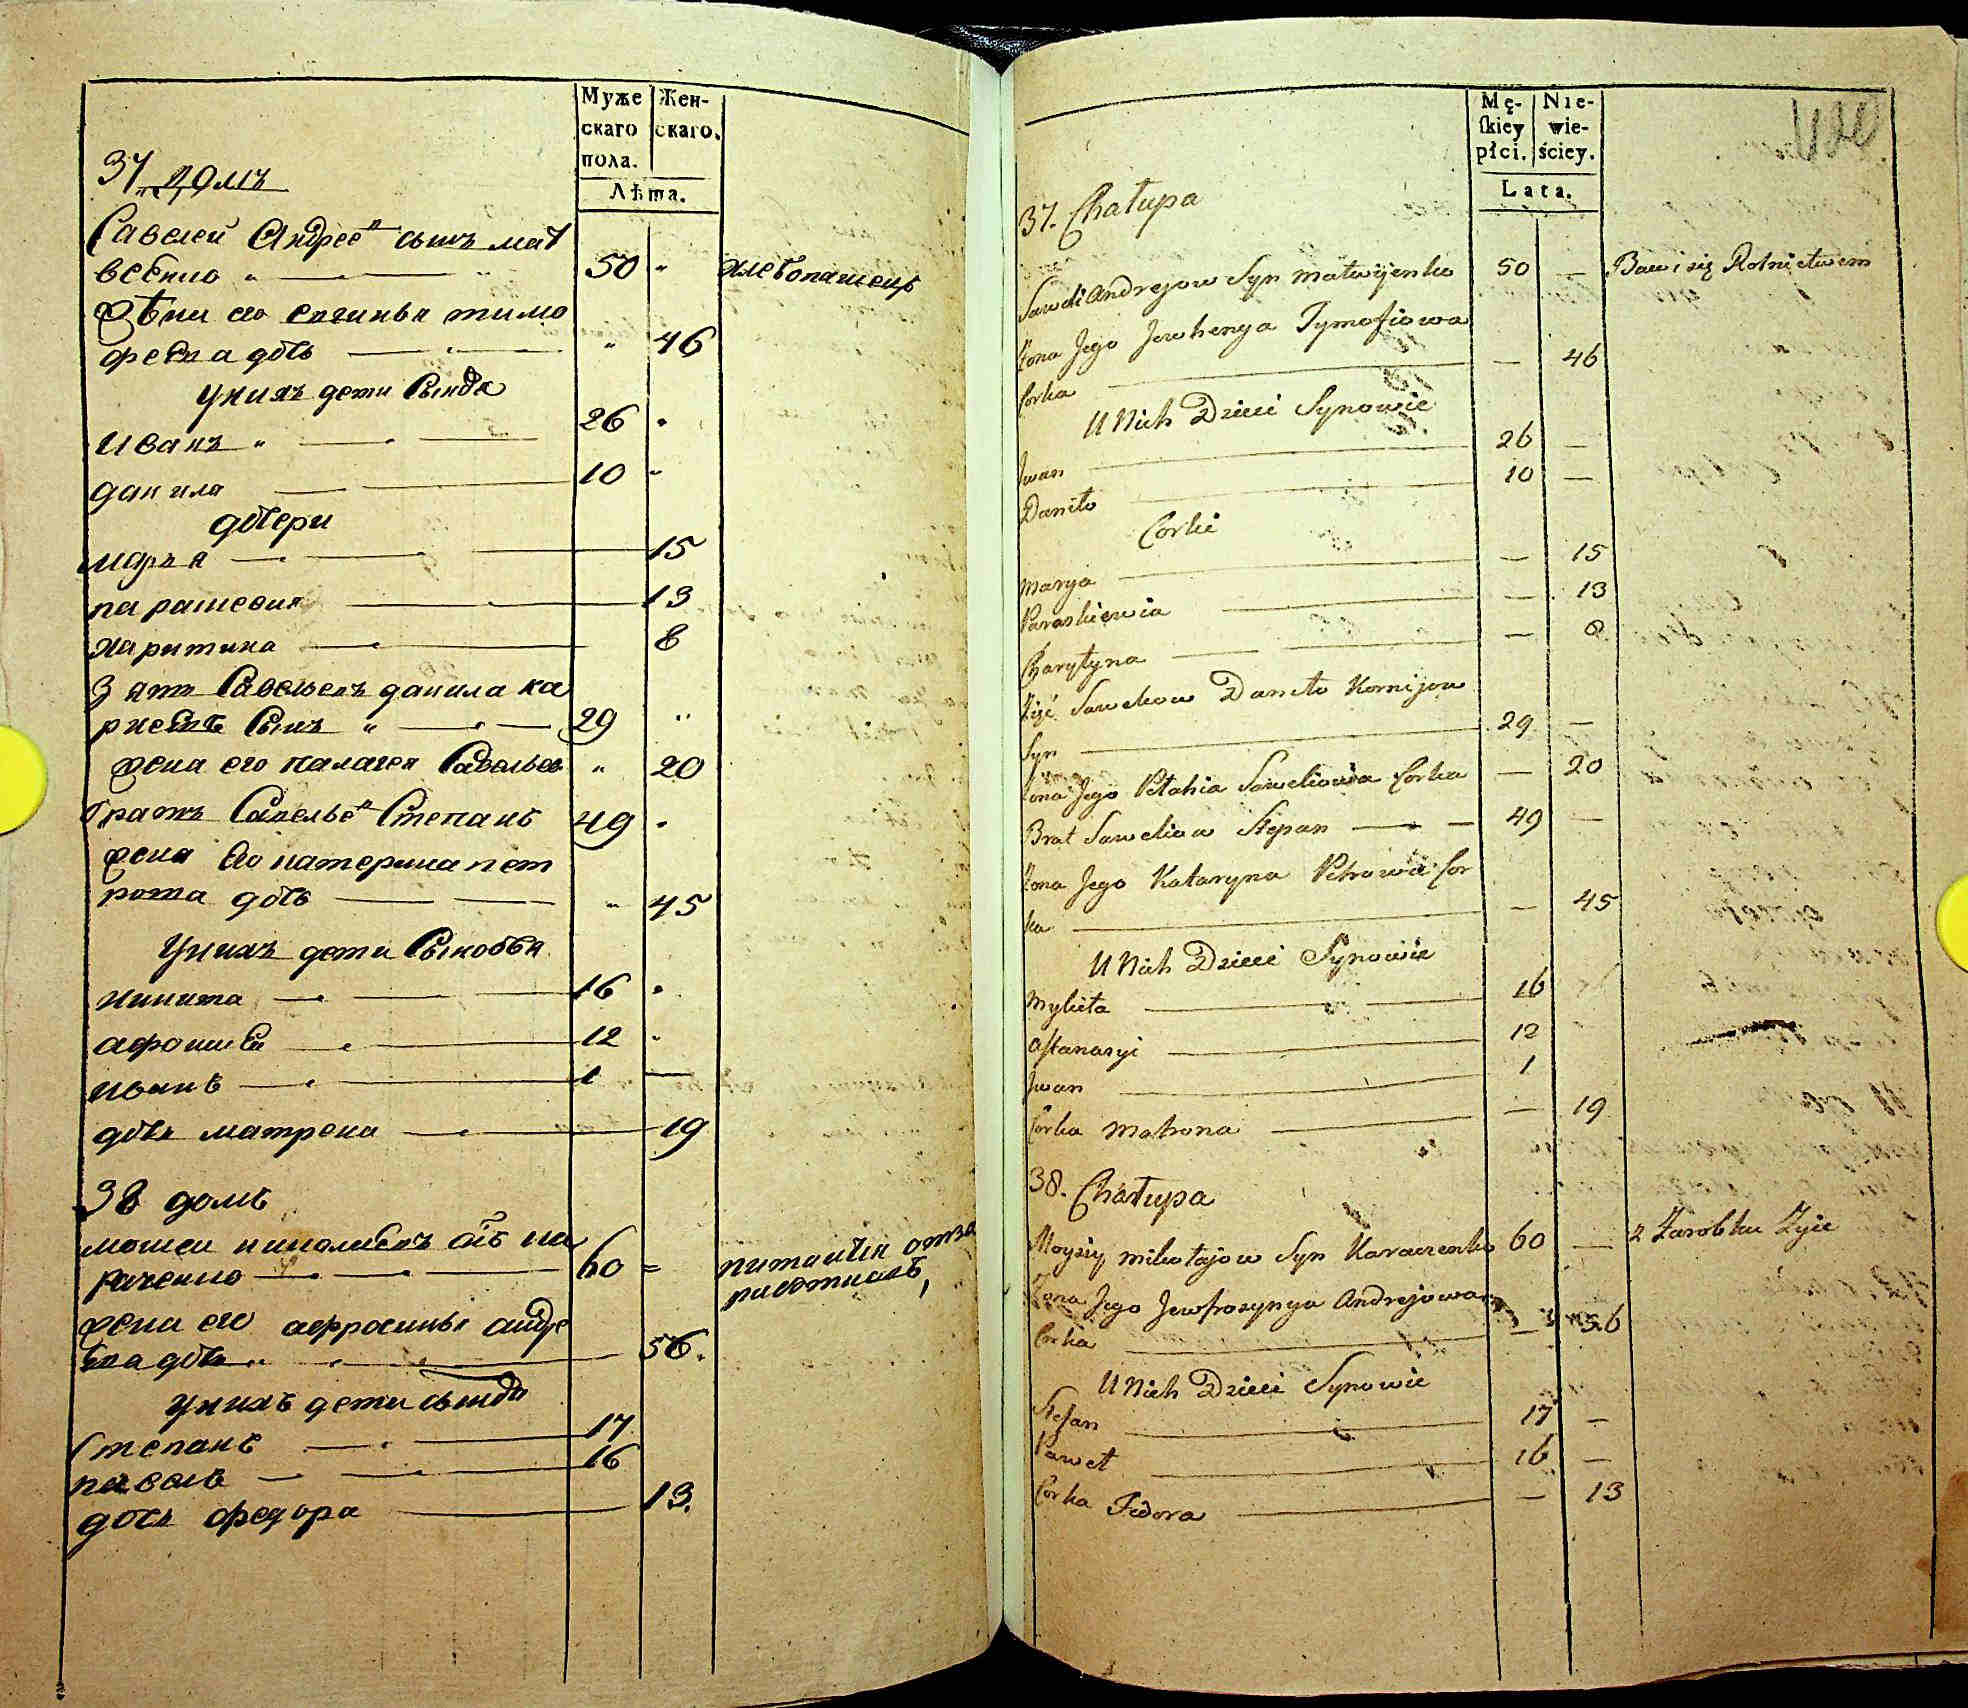 Муже
скаго
пола.
Жен-
скаго.
Лѣта.
37 домъ
Савелей Андреевъ сынъ мат
веенко 50 хлебопашецъ
жена его евгинья тимо
феева дочь 46
У нихъ дети Сыновя
Иванъ 26
данила 10
дочери
марья 15
парасковия 13
харитина 8
Зять Савельевъ данила ка
рнеевъ Сынъ 29
жена его палагея Савельева 20
братъ Савельевъ Степанъ 49
жена его катерина пет
рова дочь 45
У нихъ дети Сыновья
никита 16
афонасей 12
иванъ 1
дочь матрена 19
38 домъ
мосеи николаевъ сынъ ка
раченко 60 питаится отза
работковъ,
жена его афросинья андре
ева дочь 56.
У нихъ дети сыновья
Степанъ 17
павелъ 16
дочь федора 13.
Mę-
skiey
płci.
Nie-
wie-
ściey.
Lata.
37. Chałupa
Saweli Andrejow Syn Matwijenko 50 — Bawi się Rolnictwem
Żona Jego Jewhenya Tymofiowa
Corka — 46
U Nich Dzieci Synowie
Jwan 26 —
Daniło 10 —
Corki
Marya — 15
Paraskiewia — 13
Charytyna — 8
Zięć Sawelow Daniło Kornijow
Syn 29 —
Żona Jego Pełahia Saweliowa Corka — 20
Brat Saweliow Stepan 49 —
Żona Jego Kataryna Petrowa Cor
ka — 45
U Nich Dzieci Synowie
Mykita 16
Aftanasyi 12
Jwan 1
Corka Matrona — 19
38. Chałupa
Moysiy Mikołajow Syn Karaczenko 60 — z Zarobku Żyie
Żona Jego Jewfrosynya Andrejowa
Corka — 56
U Nich Dzieci Synowie
Stefan 17 —
Paweł 16 —
Corka Fedora — 13